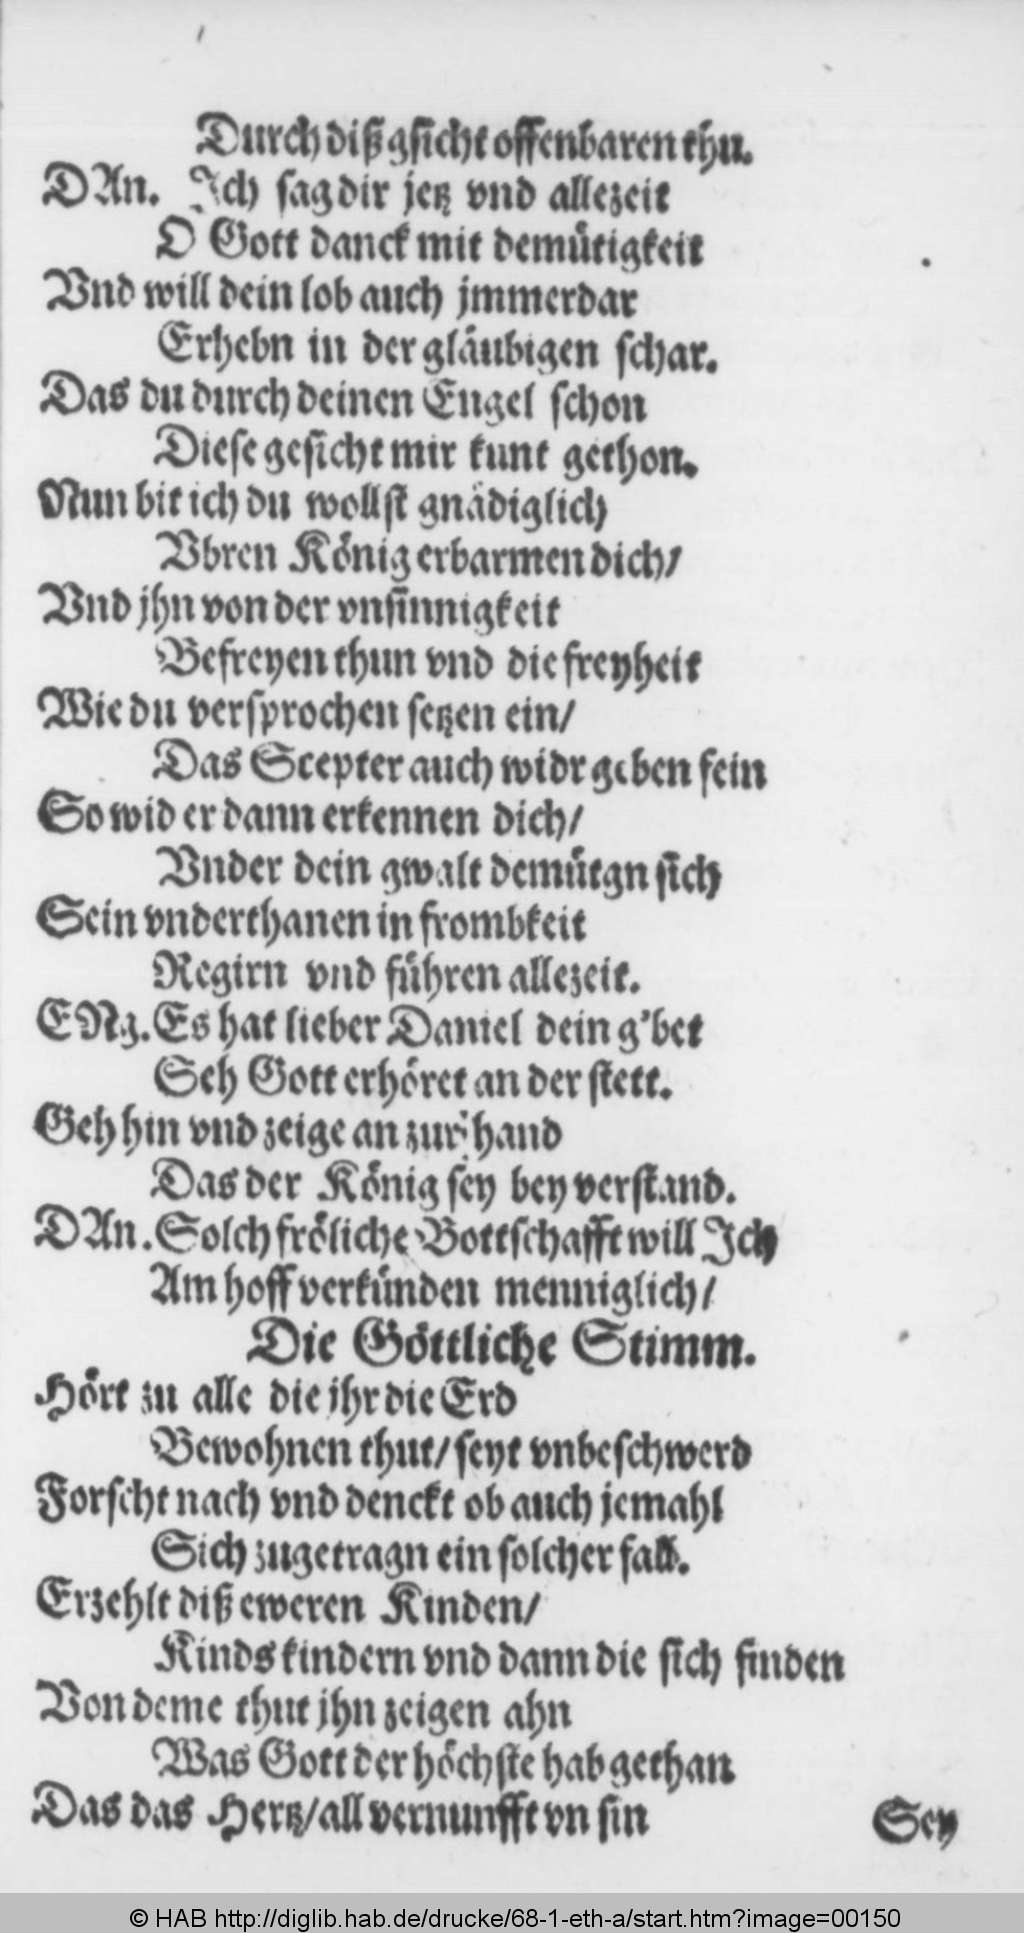 Durch diß gsicht offenbaren thu.
DAn. Ich sag dir jetz vnd allezeit
O Gott danck mit demütigkeit
Vnd will dein lob auch jmmerdar
Erhebn in der gläubigen schar.
Das du durch deinen Engel schon
Diese gesicht mir kunt gethon.
Nun bit ich du wollst gnädiglich
Vbren König erbarmen dich/
Vnd jhn von der vnsinnigkeit
Befreyen thun vnd die freyheit
Wie du versprochen setzen ein/
Das Scepter auch widr geben fein
So wid er dann erkennen dich/
Vnder dein gwalt demütgn sich
Sein vnderthanen in frombkeit
Regirn vnd führen allezeit.
ENg. Es hat lieber Daniel dein g'bet
Seh Gott erhöret an der stett.
Geh hin vnd zeige an zur hand
Das der König sey bey verstand.
DAn. Solch fröliche Bottschafft will Ich
Am hoff verkünden menniglich/
Die Göttliche Stimm.
Hört zu alle die jhr die Erd
Bewohnen thut/ seyt vnbeschwerd
Forscht nach vnd denckt ob auch jemahl
Sich zugetragn ein solcher fall.
Erzehlt diß eweren Kinden/
Kindskindern vnd dann die sich finden
Von deme thut jhn zeigen ahn
Was Gott der höchste hab gethan
Das das Hertz/ all vernunfft vn sin
Sey
© HAB http://diglib.hab.de/drucke/68-1-eth-a/start.htm?image=00150